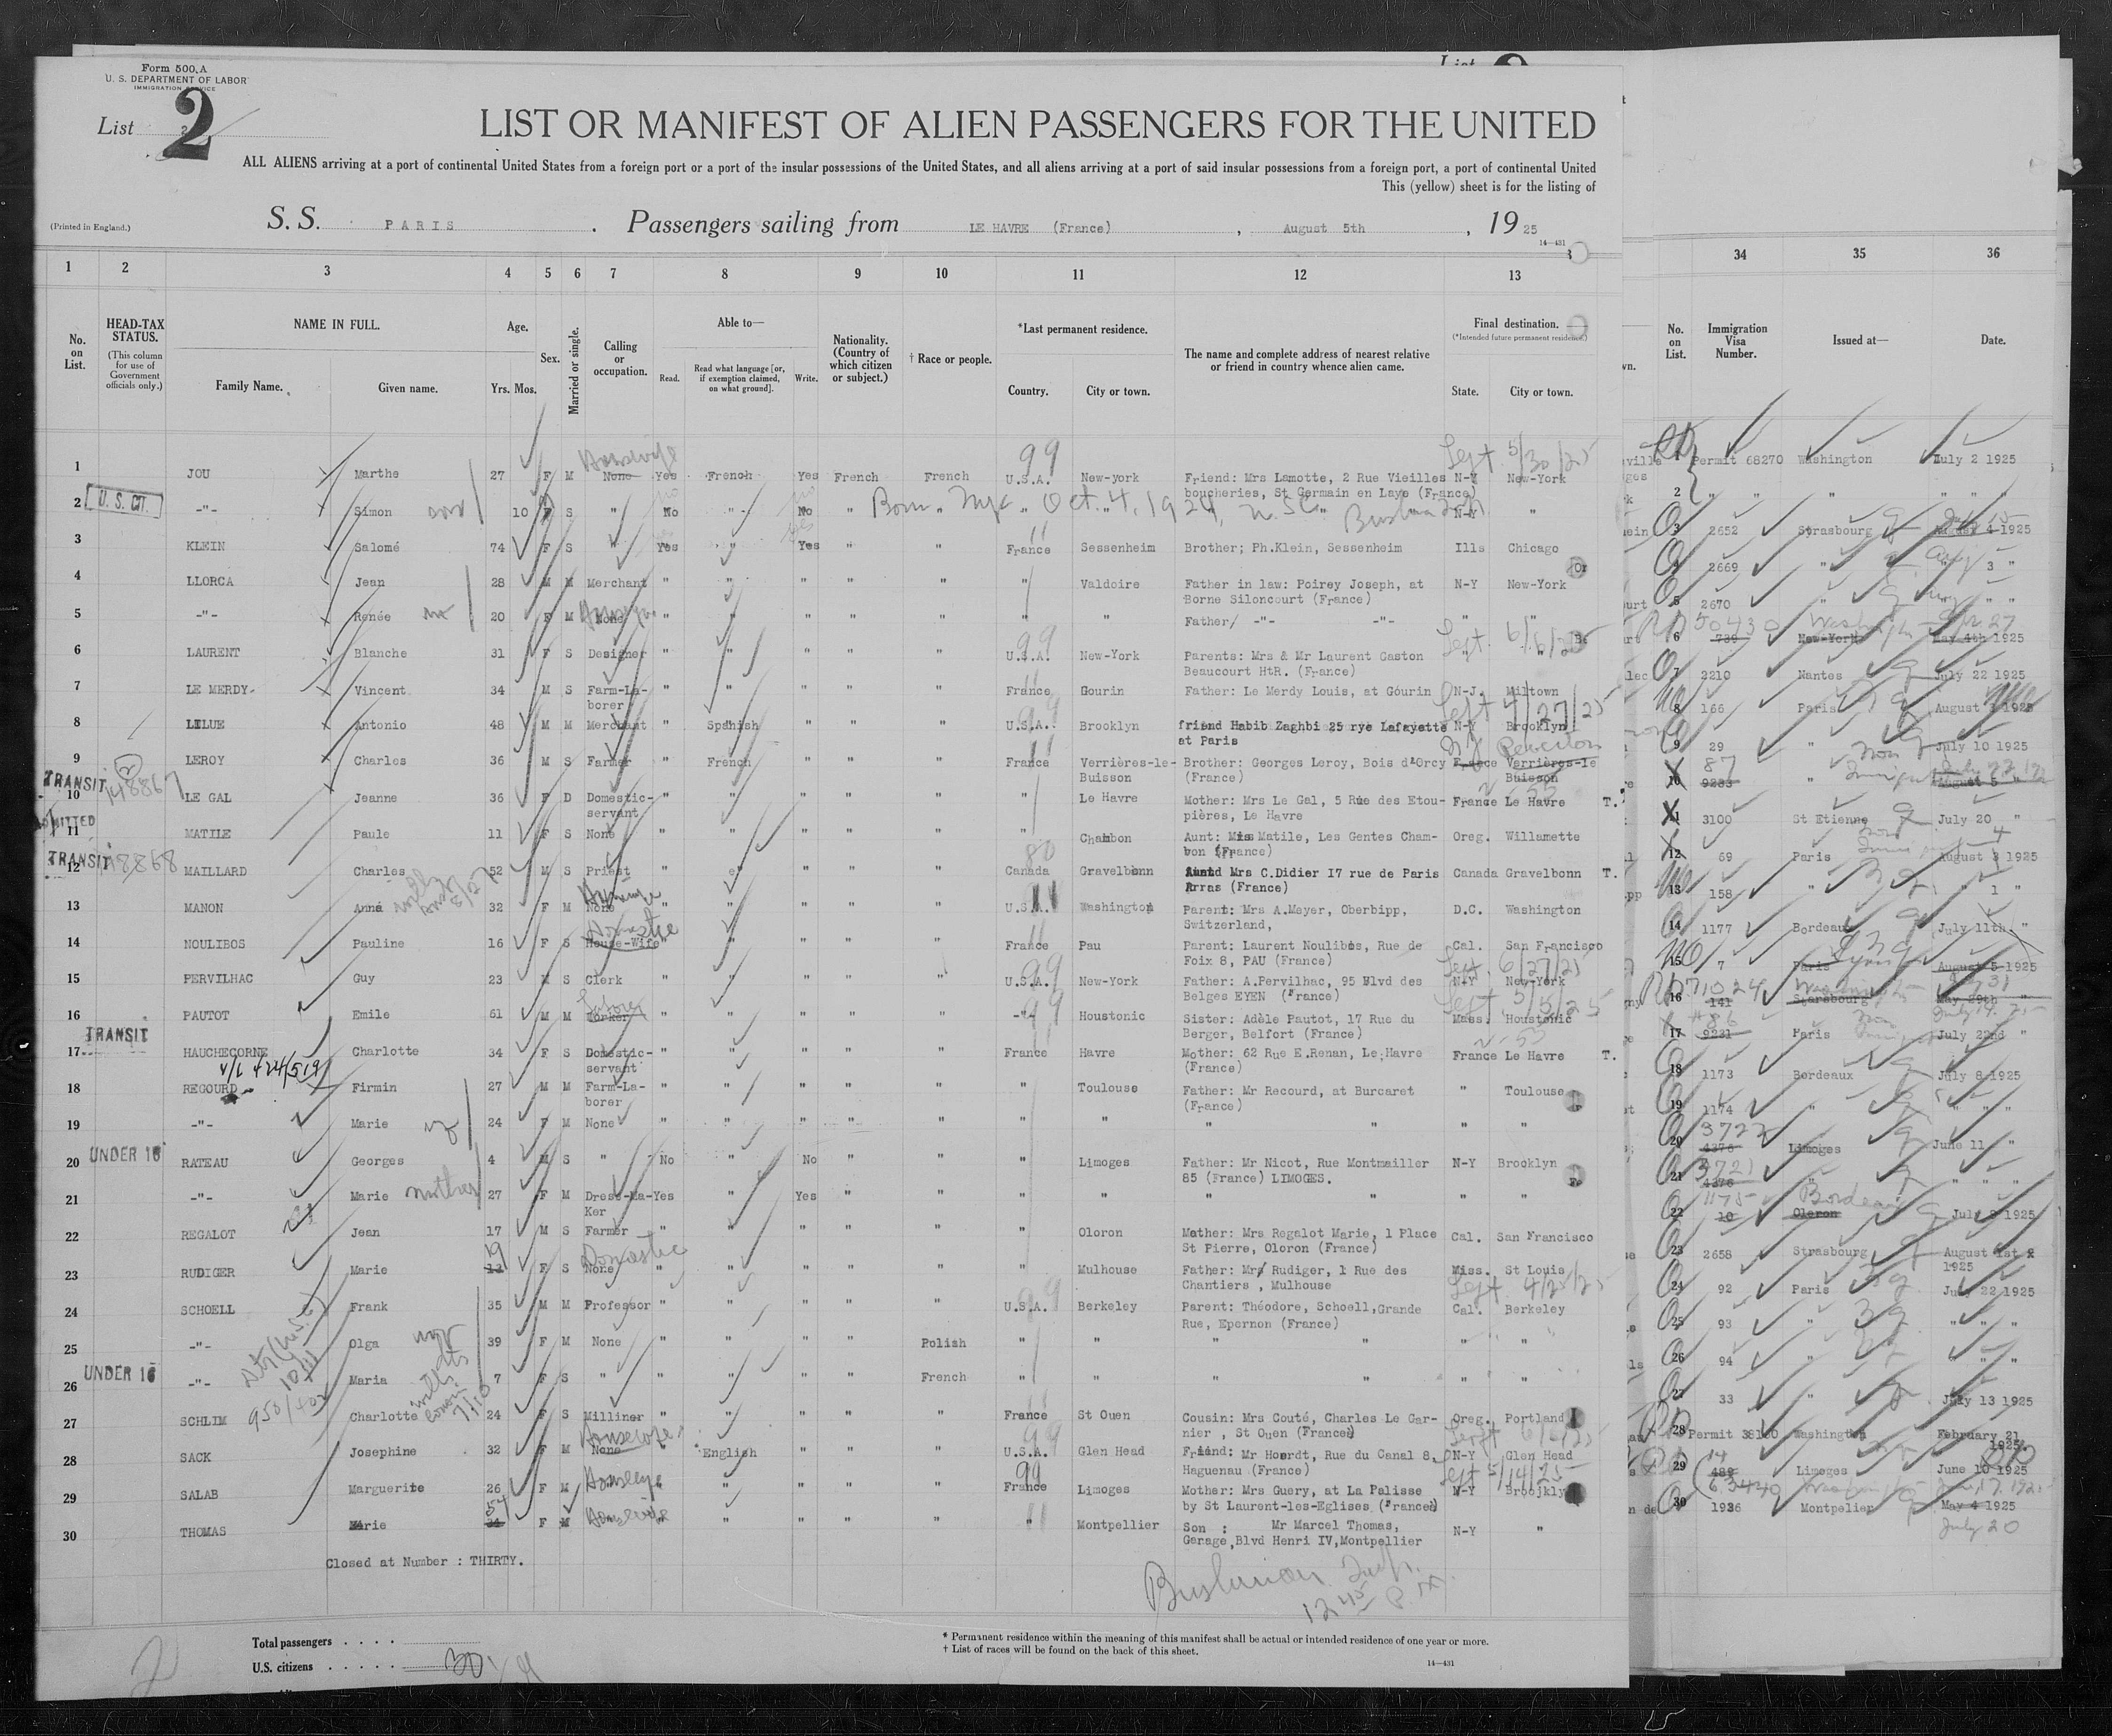 Form 500.A
U. S. DEPARTMENT OF LABOR
IMMIGRATION SERVICE
List 2
LIST OR MANIFEST OF ALIEN PASSENGERS FOR THE UNITED
ALL ALIENS arriving at a port of continental United States from a foreign port or a port of the insular possessions of the United States, and all aliens arriving at a port of said insular possessions from a foreign port, a port of continental United
This (yellow) sheet is for the listing of
(Printed in England.) S. S. PARIS . Passengers sailing from LE HAVRE (France) , August 5th , 19 25
14—431
1 2 3 4 5 6 7 8 9 10 11 12 13 34 35 36
No. on List. HEAD-TAX STATUS. (This column for use of Government officials only.) NAME IN FULL. Family Name. Given name. Age. Yrs. Mos. Sex. Married or single. Calling or occupation. Able to— Read. Read what language [or, if exemption claimed, on what ground]. Write. Nationality. (Country of which citizen or subject.) † Race or people. *Last permanent residence. Country. City or town. The name and complete address of nearest relative or friend in country whence alien came. Final destination. (*Intended future permanent residence.) State. City or town. No. on List. Immigration Visa Number. Issued at— Date.
1 JOU Marthe 27 F M None Housewife Yes French Yes French French U.S.A. 99 New-york Friend: Mrs Lamotte, 2 Rue Vieilles boucheries, St Germain en Laye (France) N-Y New-York Sept. 5/30/25 1 Permit 68270 Washington July 2 1925
2 U. S. CIT. -"- Simon son 10 S " No " No " Born NYC Oct. 4, 1924 N-Y " 2 " " " "
3 KLEIN Salomé 74 F S " Yes " Yes " " France Sessenheim Brother; Ph.Klein, Sessenheim Ills Chicago 3 2652 Strasbourg 1925
4 LLORCA Jean 28 M M Merchant " " " " " " Valdoire Father in law: Poirey Joseph, at Borne Siloncourt (France) N-Y New-York 4 2669 " Aug 3 "
5 -"- Renée 20 F M None " " " " " " " Father/ -"- -"- " " 5 2670 " " "
6 LAURENT Blanche 31 F S Designer " " " " " U.S.A. 99 New-York Parents: Mrs & Mr Laurent Gaston Beaucourt HtR. (France) " " Sept. 6/6/25 6 50430 739 New-York May 4th 1925 Apr 27
7 LE MERDY Vincent 34 M S Farm-La-borer " " " " " France Gourin Father: Le Merdy Louis, at Gourin N-J. Miltown 7 2210 Nantes July 22 1925
8 LELUE Antonio 48 M M Merchant " Spanish " " " U.S.A. Brooklyn friend Habib Zaghbi 25 rye Lafayette at Paris N-Y Brooklyn Sept 4/27/25 8 166 Paris August 1925
9 LEROY Charles 36 M S Farmer " French " " " France Verrières-le-Buisson Brother: Georges Leroy, Bois d'Orcy (France) France Verrières-le Buisson 9 29 " July 10 1925
10 TRANSIT 148867 LE GAL Jeanne 36 F D Domestic-servant " " " " " " Le Havre Mother: Mrs Le Gal, 5 Rue des Etou-pières, Le Havre France Le Havre T. 10 87 9233 " August 5 "
11 ADMITTED MATILE Paule 11 F S None " " " " " " Chambon Aunt: Miss Matile, Les Gentes Cham-bon (France) Oreg. Willamette 11 3100 St Etienne July 20 "
12 TRANSIT MAILLARD Charles 52 M S Priest " " " " " Canada 80 Gravelbonn Mrs C.Didier 17 rue de Paris Arras (France) Canada Gravelbonn T. 12 69 Paris August 3 1925
13 MANON Anna 32 F M None " " " " " U.S.A. Washington Parent: Mrs A.Meyer, Oberbipp, Switzerland, D.C. Washington 13 158 " " 1 "
14 NOULIBOS Pauline 16 F S House-Wife Domestic " " " " " France Pau Parent: Laurent Noulibos, Rue de Foix 8, PAU (France) Cal. San Francisco 14 1177 Bordeaux July 11th "
15 PERVILHAC Guy 23 M S Clerk " " " " " U.S.A. 99 New-York Father: A.Pervilhac, 95 Blvd des Belges EYEN (France) N-Y New-York Sept. 6/27/25 15 7 Paris August 5 1925
16 PAUTOT Emile 61 M M Worker " " " " " -"- 99 Houstonic Sister: Adèle Pautot, 17 Rue du Berger, Belfort (France) Mass. Houstonic Sept. 5/5/25 16 71024 141 Starsbourg May 29th "
17 TRANSIT HAUCHECORNE Charlotte 34 F S Domestic-servant " " " " " France Havre Mother: 62 Rue E.Renan, Le Havre (France) France Le Havre T. 17 #86 9231 Paris July 22nd "
18 REGOURD Firmin 27 M M Farm-La-borer " " " " " " Toulouse Father: Mr Recourd, at Burcaret (France) " Toulouse 18 1173 Bordeaux July 8 1925
19 -"- Marie 24 F M None " " " " " " " " " " " 19 1174 " " " "
20 UNDER 16 RATEAU Georges 4 M S " No " No " " " Limoges Father: Mr Nicot, Rue Montmailler 85 (France) LIMOGES. N-Y Brooklyn 20 3722 4376 Limoges June 11 "
21 -"- Marie mother 27 F M Dress-Ma-Ker Yes " Yes " " " " " " " " 21 3721 4376 " " " "
22 REGALOT Jean 17 M S Farmer " " " " " " Oloron Mother: Mrs Regalot Marie, 1 Place St Pierre, Oloron (France) Cal. San Francisco 22 1175 10 Oleron Bordeaux July 8 1925
23 RUDIGER Marie 19 F S None Domestic " " " " " " Mulhouse Father: Mrs Rudiger, 1 Rue des Chantiers , Mulhouse Miss. St Louis 23 2658 Strasbourg August 1st 1925
24 SCHOELL Frank 35 M M Professor " " " " " U.S.A. 99 Berkeley Parent: Théodore, Schoell, Grande Rue, Epernon (France) Cal. Berkeley Sept 4/25/25 24 92 Paris July 22 1925
25 -"- Olga 39 F M None " " " " Polish " " " " " " 25 93 " " " "
26 UNDER 16 -"- Maria 7 F S " " " " " French " " " " " " 26 94 " " " "
27 SCHLIM Charlotte 24 F S Milliner " " " " " France St Ouen Cousin: Mrs Couté, Charles Le Gar-nier , St Ouen (France) Oreg. Portland 27 33 " July 13 1925
28 SACK Josephine 32 F M None Housewife " English " " " U.S.A. 99 Glen Head Friend: Mr Hoerdt, Rue du Canal 8, Haguenau (France) N-Y Glen Head 28 Permit 38100 Washington February 21 1925
29 SALAB Marguerite 26 F M Housewife " " " " " France 99 Limoges Mother: Mrs Guery, at La Palisse by St Laurent-les-Eglises (France) N-Y Broojklyn Sept 5/14/25 29 Limoges June 10 1925
30 THOMAS Marie 54 F M Housewife " " " " " " Montpellier Son : Mr Marcel Thomas, Garage, Blvd Henri IV, Montpellier N-Y " 30 1936 Montpelier May 4 1925 July 20
Closed at Number : THIRTY.
Bushman Insp.
12 45 P.M.
Total passengers . . . .
U.S. citizens . . . . . 30
* Permanent residence within the meaning of this manifest shall be actual or intended residence of one year or more.
† List of races will be found on the back of this sheet.
14—431